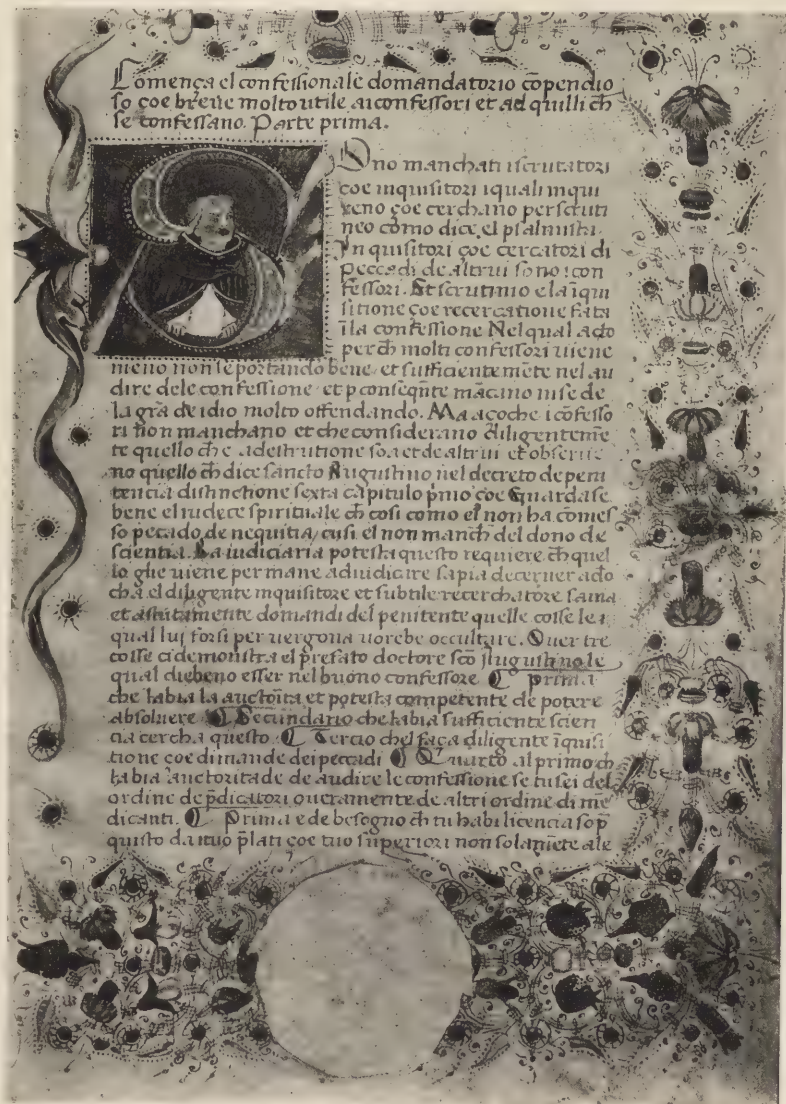 Comença el confessionale domandatorio cōpendio
so çoe breue molto utile ai confessori et ad quilli ch
se confessano. Parte prima.
Ono manchati i scrutatori
çoe inquisitori i quali inqui
reno çoe cerchano per scruti
neo como dice el psalmista.
Inquisitori çoe cercatori di
peccadi de altrui sono i con
fessori. Et scrutinio e la ĩqui
sitione çoe recercatione fata
ĩ la confessione Nel qual acto
per ch molti confessori uiene
meno non se portando bene et sufficientemēte nel au
dire dele confessione et p conseqñte mācano in se de
la grã de idio molto offendando. Ma acoche i cōfesso
ri non manchano et che considerano diligenteme
te quello che a destrutione soa et de altrui et obserue
no quello ch dice sancto Augustino nel decreto de peni
tencia distinctione sexta capitulo pmo çoe Guardase
bene el iudece spirituale ch cosi como el non ha comes
so pecado de nequitia, cusi el non manch del dono de
scientia. La iudiciaria potesta questo requiere ch quel
lo ghe uiene per mane ad iudicare sapia decerner ado
ch a el diligente inquisitore et subtile recerchatore sauia
et astutamente domandi del penitente quelle cosse le
qual luj forsi per uergona uorebe occultare. Ouer tre
cosse ci demonstra el prefato doctore sco Augustino le
qual diebeno esser nel buono confessore ¶ Prima
che habia la auctoita et potesta competente de potere
absoluere ¶ Secundario che habia sufficiente scien
cia cercha questo. ¶ Tercio chel faça diligente ĩquisi
tione çoe dimande dei peccadi ¶ Quanto al primo ch
habia auctoritade de audire le confessione se tu sei del
ordine de pdicatori oueramente de altri ordine di me
dicanti. ¶ Prima e de besogno ch tu habi licencia sop
quisto da i tuo plati çoe tuo superiori non solamēte ale